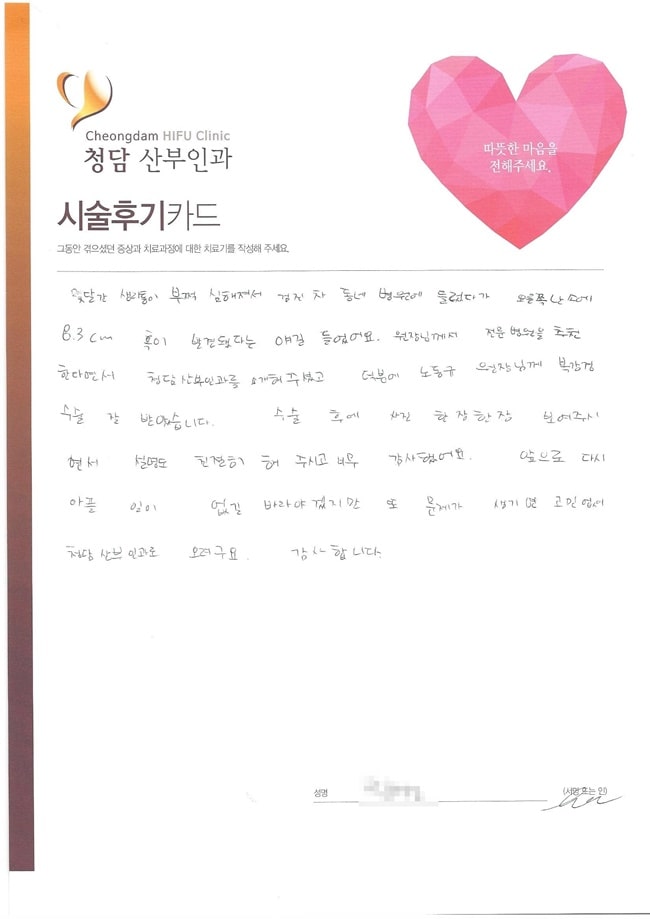 Cheongdam HIFU Clinic
청담 산부인과
따뜻한 마음을
전해주세요.
시술후기카드
그동안 겪으셨던 증상과 치료과정에 대한 치료기를 작성해 주세요.
몇달간 생리통이 부쩍 심해져서 검진 차 동네 병원에 들렀다가 오른쪽 난소에
8.3cm 혹이 발견됐다는 얘길 들었어요. 원장님께서 전문병원을 추천
한다면서 청담산부인과를 소개해주셨고 덕분에 노동규 원장님께 복강경
수술 잘 받았습니다. 수술 후에 사진 한장한장 보여주시
면서 설명도 친절히 해 주시고 너무 감사했어요. 앞으로 다시
아플 일이 없길 바라야겠지만 또 문제가 생기면 고민없이
청담 산부인과로 오려구요. 감사합니다.
성명 (서명 또는 인)